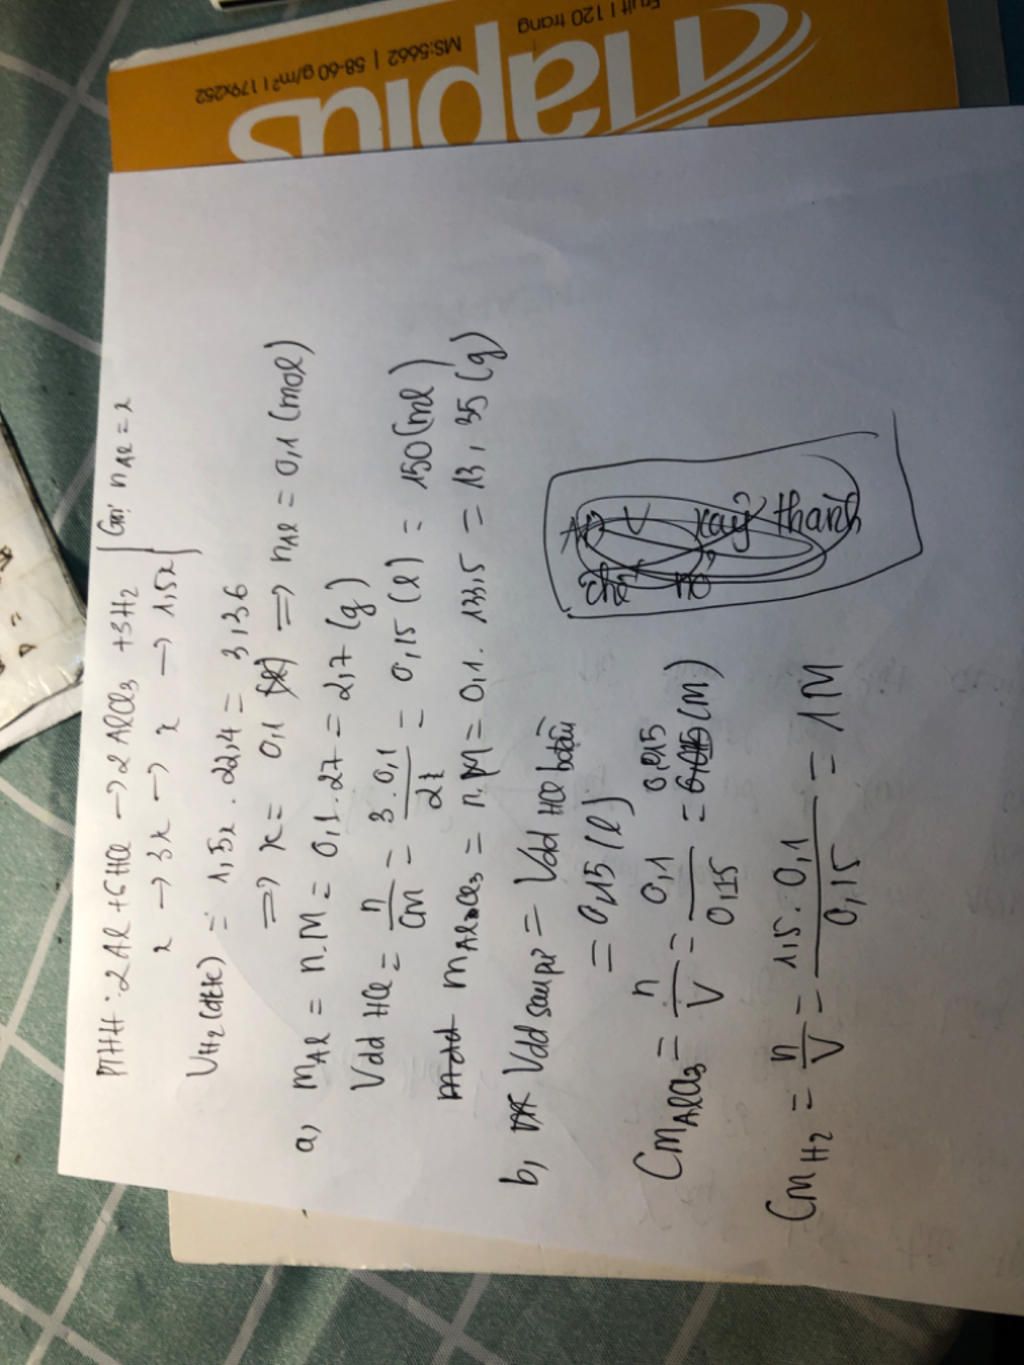 Fruit | 120 trang
MS:5662 | 58-60 g/m² | 179x252
Haplus
PTHH: 2Al + 6HCl → 2AlCl3 + 3H2 | Gọi nAl = x
x → 3x → x → 1,5x
VH2(đktc) = 1,5x . 22,4 = 3,136
=> x = 0,1 => nAl = 0,1 (mol)
a, mAl = n.M = 0,1.27 = 2,7 (g)
Vdd HCl = n/CM = 3.0,1/2 = 0,15 (l) = 150 (ml)
mAlCl3 = n.M = 0,1.133,5 = 13,35 (g)
b, Vdd sau pứ = Vdd HCl ban đầu
= 0,15 (l)
CMAlCl3 = n/V = 0,1/0,15 = (M)
CMH2 = n/V = 1,5.0,1/0,15 = 1M
V xảy thành
chế nó